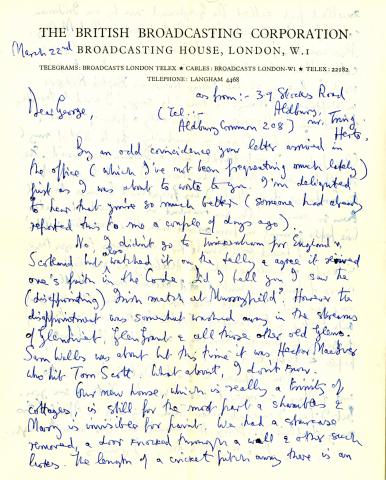 THE BRITISH BROADCASTING CORPORATION
BROADCASTING HOUSE, LONDON, W.1
TELEGRAMS: BROADCASTS LONDON TELEX ★ CABLES: BROADCASTS LONDON-W1 ★ TELEX: 22182
TELEPHONE: LANGHAM 4468
March 22nd
as from:- 39 Stocks Road
Aldbury,
Dear George,
(Tel:- Aldbury Common 208) nr. Tring
Herts.
By an odd coincidence your letter arrived in
the office (which I've not been frequenting much lately)
just as I was about to write to you. I'm delighted
to hear that you're so much better (someone had already
reported this to me a couple of days ago).
No, I didn't go to Twickenham for England v.
Scotland but also watched it on the telly & agree it
one's faith in the Did I tell you I saw the
(disappointing) Irish match at Murrayfield? However the
disappointment was somewhat washed away in the streams
of Glenlivet, Glen Grant & all those other old Glens.
Sam Wells was about but this time it was Hector
who hit Tom Scott. What about, I don't know.
Our new house, which is really a trinity of
cottages, is still for the most part a shambles &
Mary is invisible for paint. We had a staircase
removed, a door knocked through a wall & other such
larks. The length of a cricket pitch away there is an